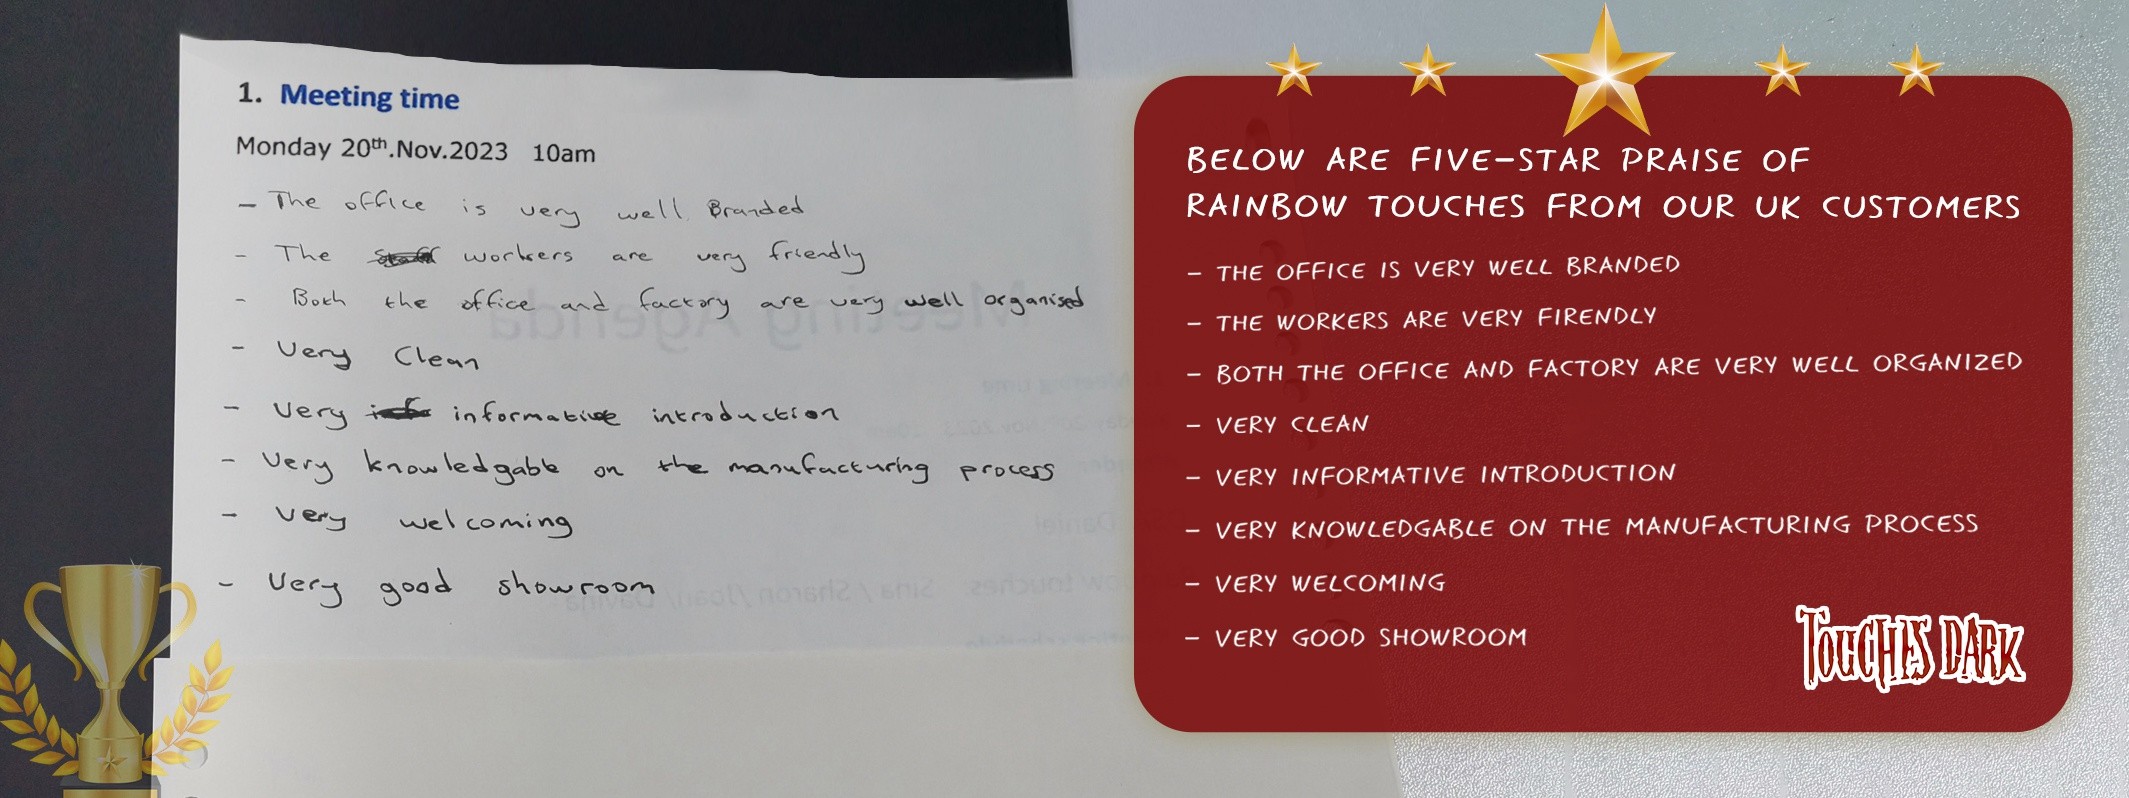 1. Meeting time
Monday 20th.Nov.2023 10am
- The office is very well Branded
- The workers are very friendly
- Both the office and factory are very well organised
- Very Clean
- Very informative introduction
- Very knowledgable on the manufacturing process
- Very welcoming
- Very good showroom
Meeting Agenda
BELOW ARE FIVE-STAR PRAISE OF
RAINBOW TOUCHES FROM OUR UK CUSTOMERS
- THE OFFICE IS VERY WELL BRANDED
- THE WORKERS ARE VERY FIRENDLY
- BOTH THE OFFICE AND FACTORY ARE VERY WELL ORGANIZED
- VERY CLEAN
- VERY INFORMATIVE INTRODUCTION
- VERY KNOWLEDGABLE ON THE MANUFACTURING PROCESS
- VERY WELCOMING
- VERY GOOD SHOWROOM
TOUCHES DARK